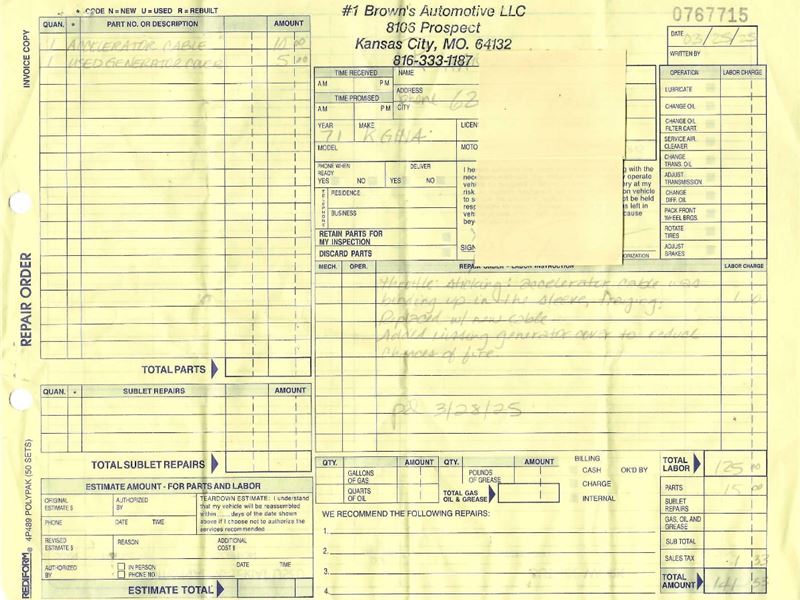 * CODE N = NEW U = USED R = REBUILT
QUAN. * PART NO. OR DESCRIPTION AMOUNT
1 ACCELERATOR CABLE 10 00
1 USED GENERATOR COVER 5 00
TOTAL PARTS
QUAN. * SUBLET REPAIRS AMOUNT
TOTAL SUBLET REPAIRS
ESTIMATE AMOUNT - FOR PARTS AND LABOR
ORIGINAL ESTIMATE $ AUTHORIZED BY
PHONE DATE TIME
TEARDOWN ESTIMATE: I understand
that my vehicle will be reassembled
within days of the date shown
above if I choose not to authorize the
services recommended
REVISED ESTIMATE $ REASON ADDITIONAL COST $
AUTHORIZED BY IN PERSON DATE TIME
PHONE NO.
ESTIMATE TOTAL
INVOICE COPY
REPAIR ORDER
REDIFORM® 4P489 POLYPAK (50 SETS)
#1 Brown's Automotive LLC
8106 Prospect
Kansas City, MO. 64132
816-333-1187
0767715
DATE 03/25/25
WRITTEN BY
TIME RECEIVED
AM PM
TIME PROMISED
AM PM
NAME
ADDRESS
phone 62
CITY
YEAR MAKE
71 K GHIA
MODEL
PHONE WHEN READY DELIVER
YES NO YES NO
TELEPHONE RESIDENCE
BUSINESS
RETAIN PARTS FOR
MY INSPECTION
DISCARD PARTS
OPERATION LABOR CHARGE
LUBRICATE
CHANGE OIL
CHANGE OIL FILTER CART.
SERVICE AIR CLEANER
CHANGE TRANS. OIL
ADJUST TRANSMISSION
CHANGE DIFF. OIL
PACK FRONT WHEEL BRGS.
ROTATE TIRES
ADJUST BRAKES
MECH. OPER. REPAIR ORDER - LABOR INSTRUCTION LABOR CHARGE
Throttle sticking: accelerator cable was
binding up in the sleeve, fraying;
Replaced w/ new cable
Added missing generator cover to reduce
chances of fire
pd 3/28/25
QTY. AMOUNT QTY. AMOUNT
GALLONS OF GAS POUNDS OF GREASE
QUARTS OF OIL TOTAL GAS OIL & GREASE
BILLING
CASH OK'D BY
CHARGE
INTERNAL
WE RECOMMEND THE FOLLOWING REPAIRS:
1.
2.
3.
4.
TOTAL LABOR 125 00
PARTS 15 00
SUBLET REPAIRS
GAS, OIL AND GREASE
SUB TOTAL
SALES TAX 1 33
TOTAL AMOUNT 141 33